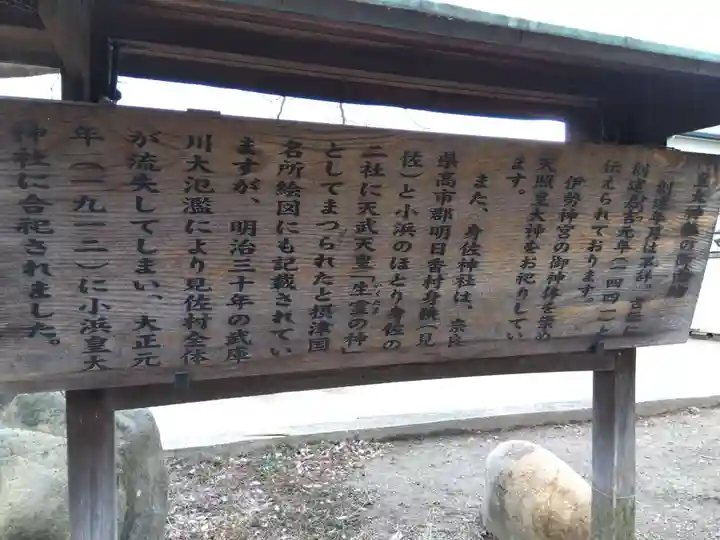 皇大神社の御由緒
創建年月は不詳、古伝に
創建嘉吉元年(一四四一)と
伝えられております。
伊勢神宮の御神体を崇め
天照皇大神をお祀りしてい
ます。
また、身佐神社は、奈良
県高市郡明日香村身狭(見
佐)と小浜のほとり身佐の
二社に天武天皇「生霊の神」
いくたま
としてまつられたと摂津国
名所絵図にも記載されてい
ますが、明治三十年の武庫
川大氾濫により見佐村全体
が流失してしまい、大正元
年(一九一二)に小浜皇大
神社に合祀されました。